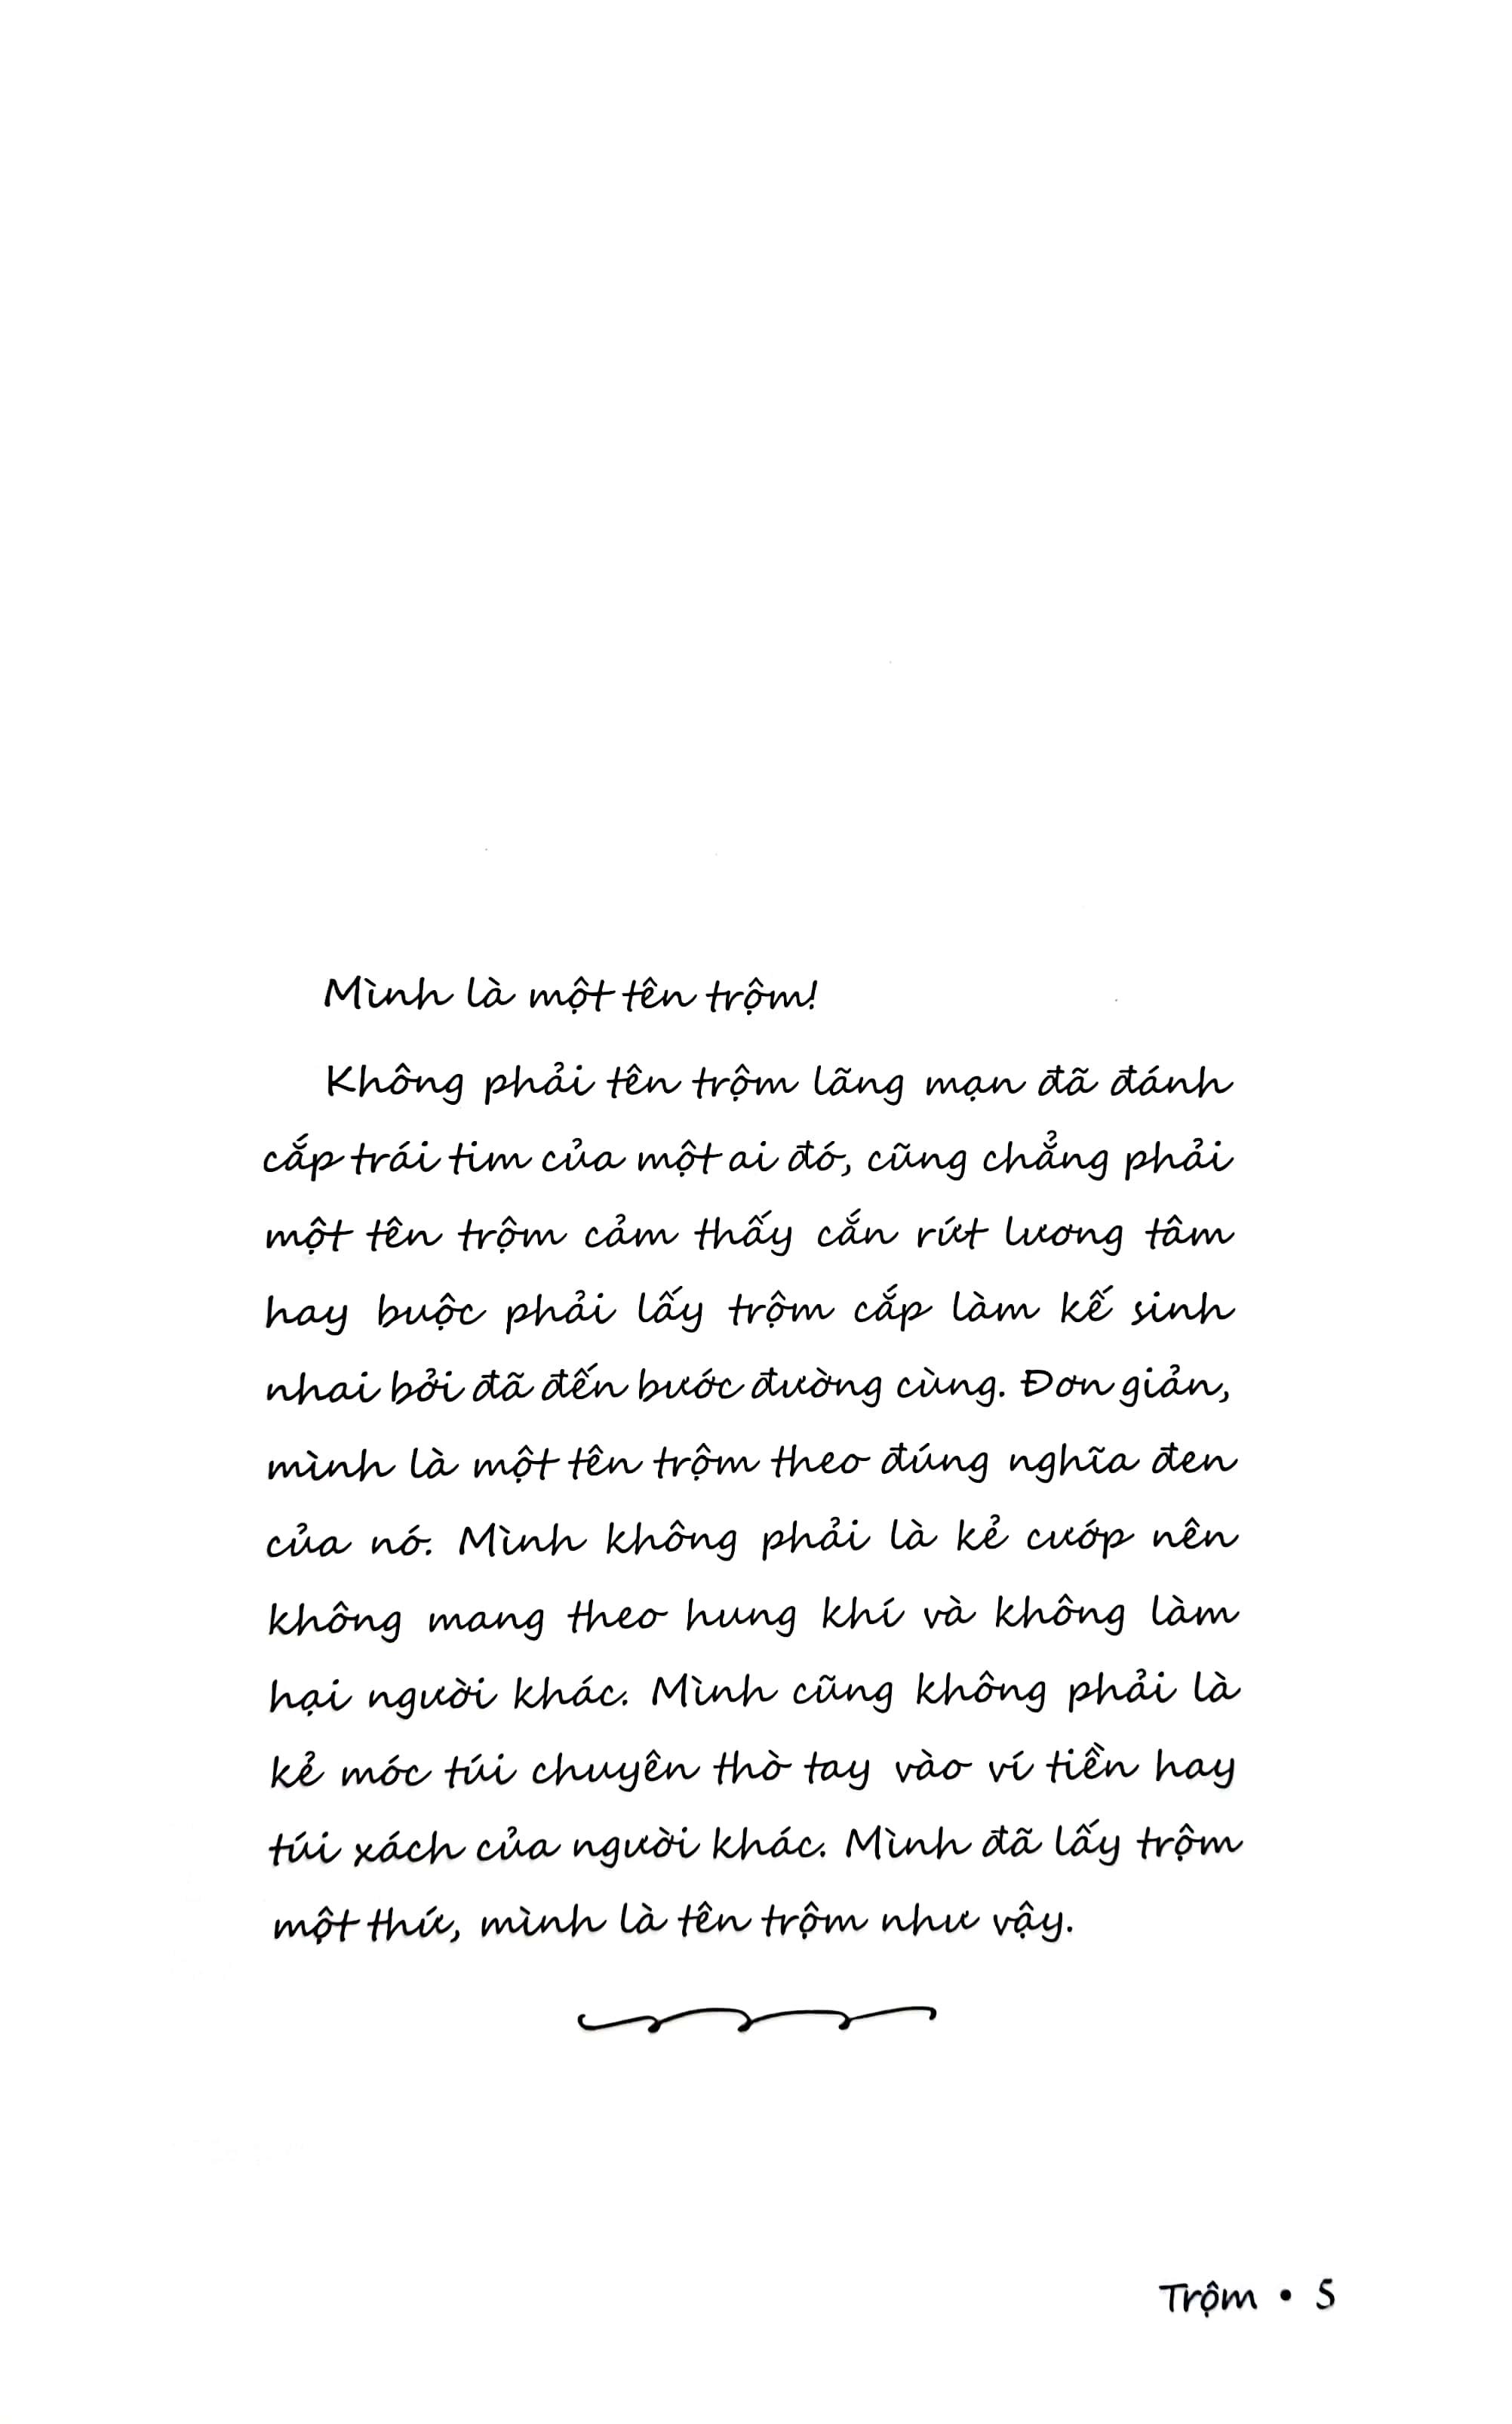 Mình là một tên trộm!
Không phải tên trộm lãng mạn đã đánh
cắp trái tim của một ai đó, cũng chẳng phải
một tên trộm cảm thấy cắn rứt lương tâm
hay buộc phải lấy trộm cắp làm kế sinh
nhai bởi đã đến bước đường cùng. Đơn giản,
mình là một tên trộm theo đúng nghĩa đen
của nó. Mình không phải là kẻ cướp nên
không mang theo hung khí và không làm
hại người khác. Mình cũng không phải là
kẻ móc túi chuyên thò tay vào ví tiền hay
túi xách của người khác. Mình đã lấy trộm
một thứ, mình là tên trộm như vậy.
Trộm • 5